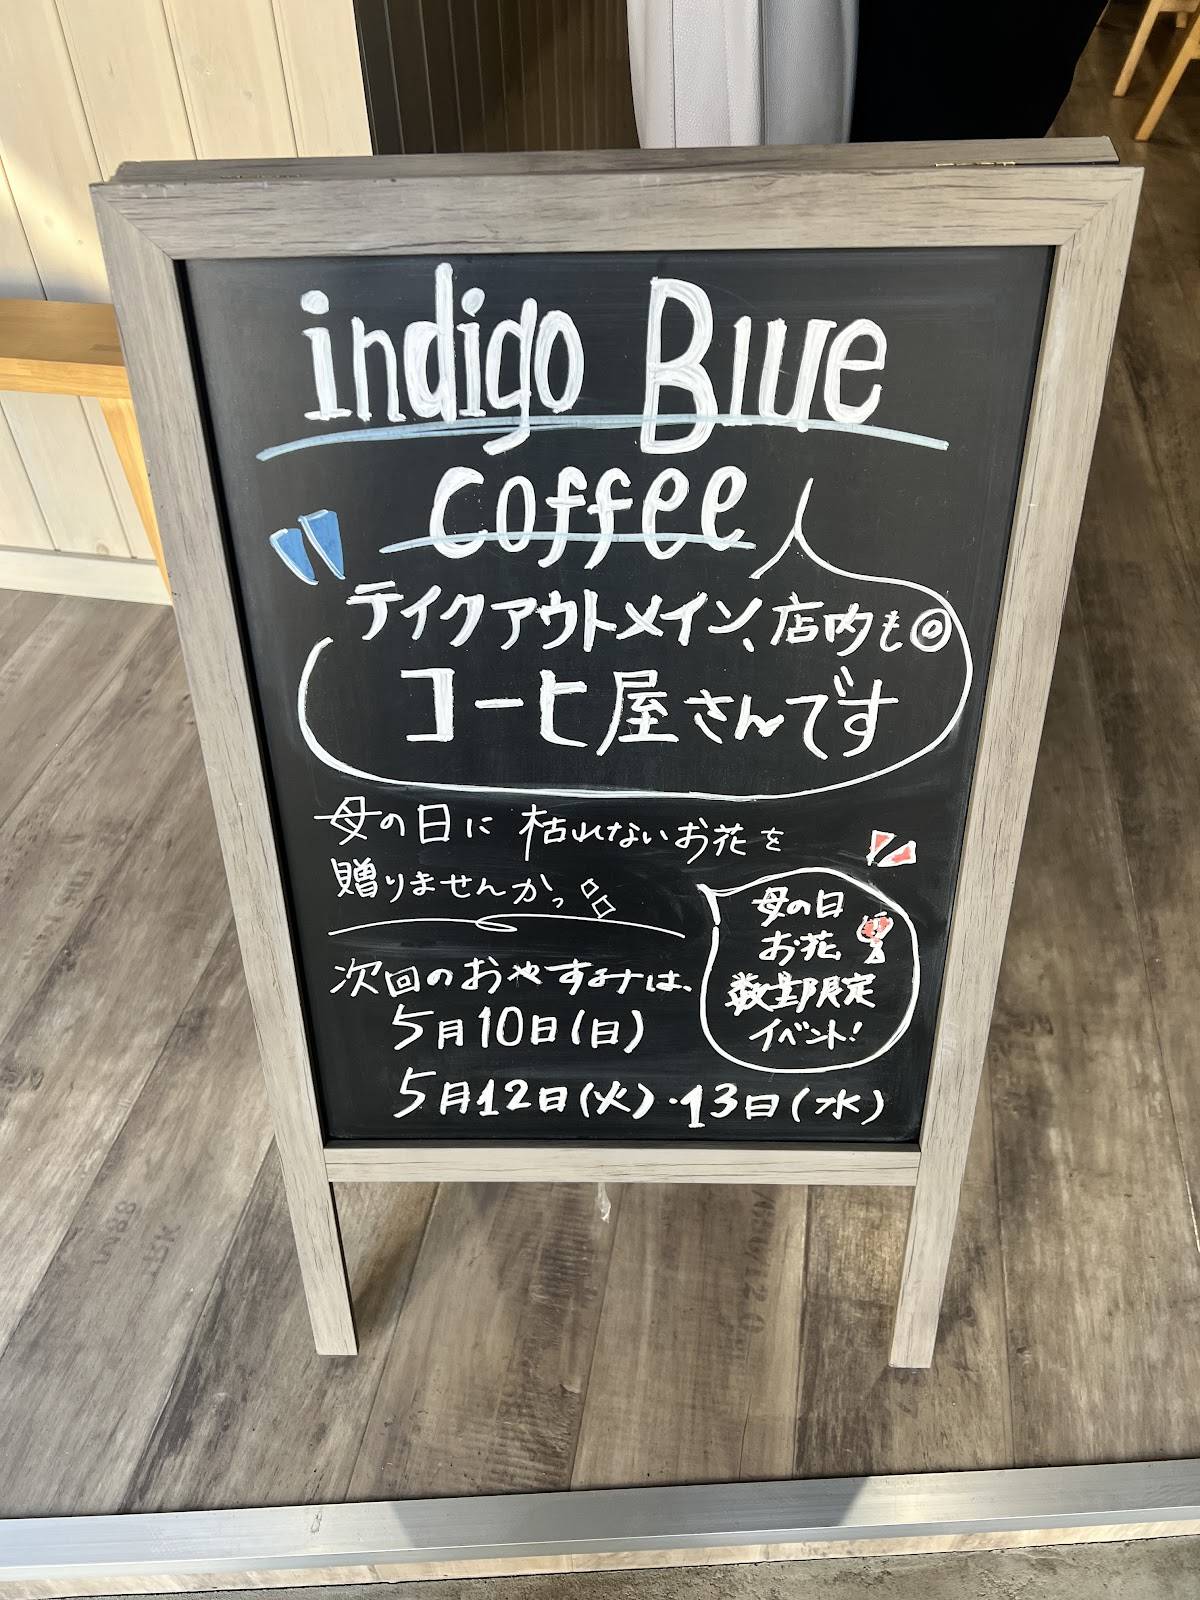 indigo Blue
coffee
テイクアウトメイン、店内も◎
コーヒ屋さんです
母の日に 枯れないお花を
贈りませんかっ
母の日
お花
数量限定
イベント!
次回のおやすみは、
5月10日(日)
5月12日(火)・13日(水)